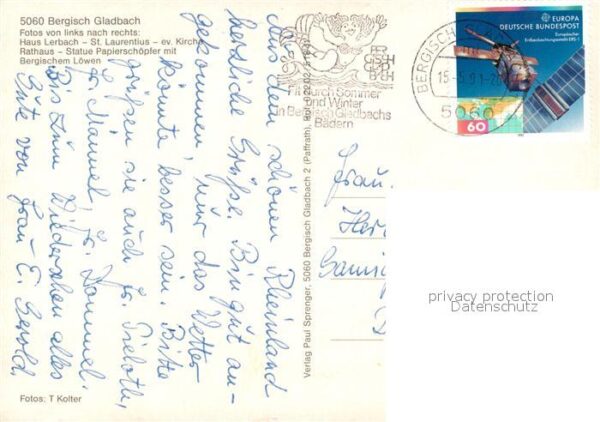 5060 Bergisch Gladbach
Fotos von links nach rechts:
Haus Lerbach – St. Laurentius – ev. Kirche
Rathaus – Statue Papierschöpfer mit
Bergischem Löwen
Aus dem schönen Rheinland
herzliche Grüße. Bin gut an-
gekommen, nur das Wetter
könnte besser sein. Bitte
grüßen sie auch
Fr. Männel, Fr.
Bis zum Wiedersehen alles
Gute von Frau E.
Fotos: T Kolter
Verlag Paul Sprenger, 5060 Bergisch Gladbach 2 (Paffrath), Ruf
BER
GISCH
GLAD
BACH
Fit durch Sommer
und Winter
in Bergisch Gladbachs
Bädern
BERGISCH
15.-5.91-
5060
EUROPA
DEUTSCHE BUNDESPOST
Europäischer
Erdbeobachtungssatellit ERS-1
60
Frau
privacy protection
Datenschutz